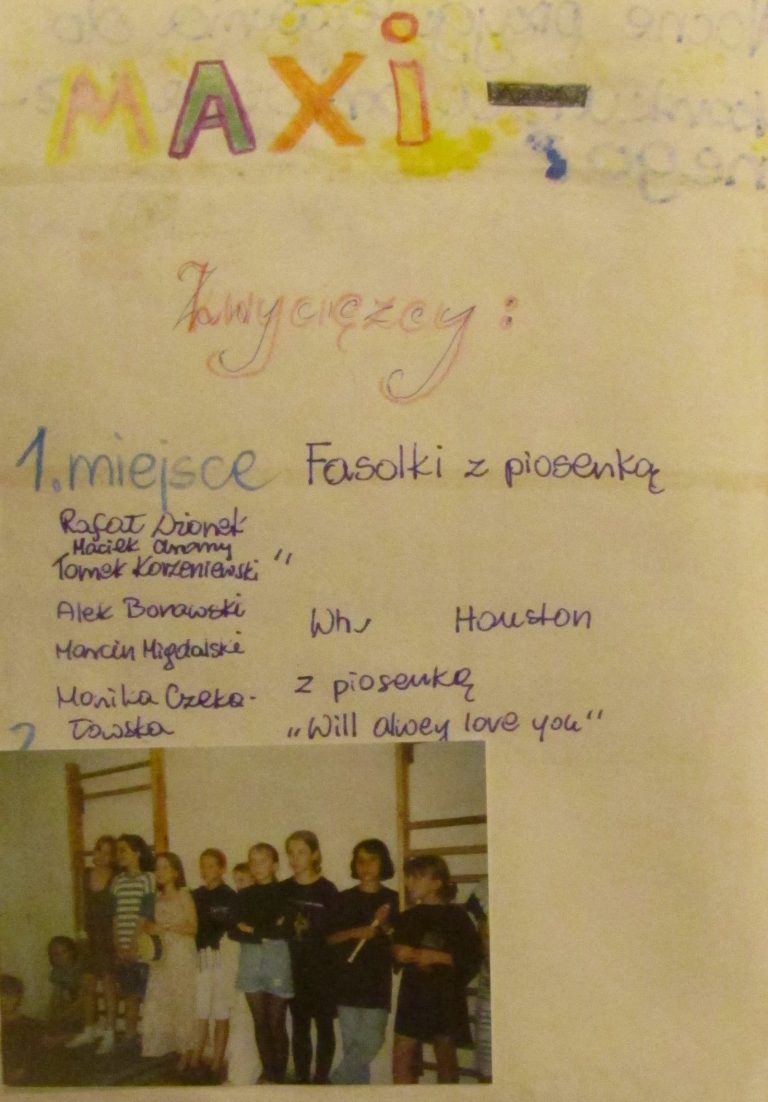 MAXi -
Zwycięzcy :
1. miejsce Fasolki z piosenką
Rafał Dzionek
Maciek
Tomek Korzeniewski "
Alek Borawski
Wh Houston
Marcin Migdalski
z piosenką
Monika Czeka-
łowska
„Will alwey love you"
2